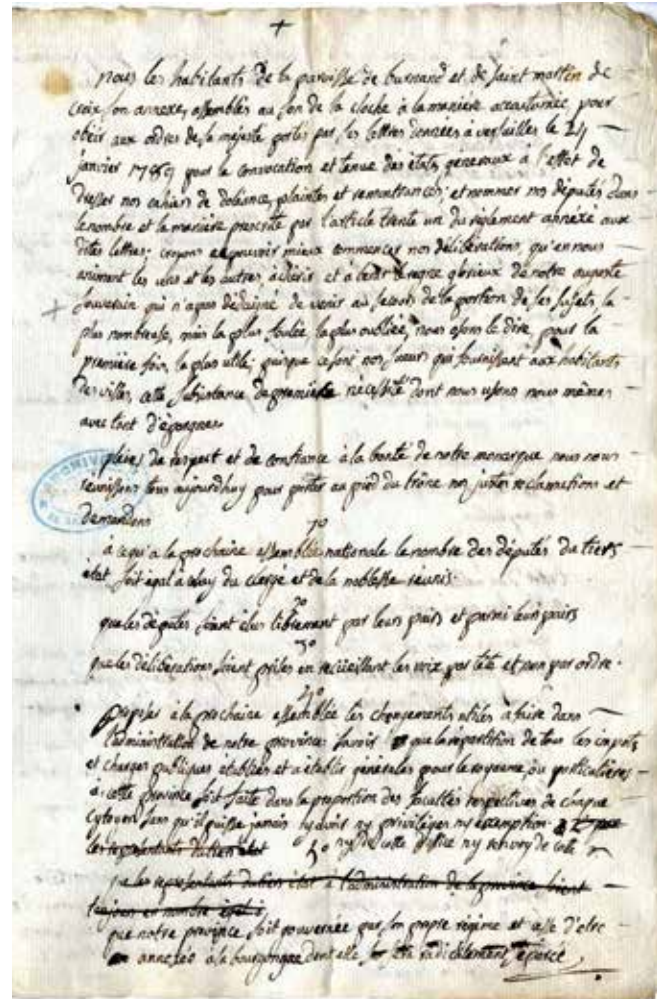 +
nous les habitants de la paroisse de burnand et de saint martin de
croix son annexe, assemblés au son de la cloche à la maniere accoutumée pour
obéir aux ordres de sa majeste portés par ses lettres données à versailles le 24
janvier 1789 pour la convocation et tenue des états generaux à l'effet de
dresser nos cahiers de doléance, plaintes et remontrances, et nommer nos députés dans
le nombre et la maniere prescrite par l'article trente un du règlement annéxé aux
dites lettres; croyons ne pouvoir mieux commencer nos déliberations, qu'en nous
animant les uns et les autres, à chérir et a benir le regne glorieux de notre auguste
souverain qui n'a pas dédaigné de venir au secours de la portion de ses sujets, la
plus nombreuse, mais la plus foulée, la plus oubliée, nous osons le dire, pour la
premiere fois, la plus utile; puisque ce sont nos sueurs qui fournissent aux habitants
des villes, cette subsistance de premiere nécessité dont nous usons nous mêmes
avec tant d'épargnes
pleins de respect et de confiance à la bonté de notre monarque nous nous
réunissons tous aujourdhuy pour porter au pied du trône nos justes reclamations et
demandons
1º
à ce qu'a la prochaine assemblée nationale le nombre des députés du tiers
état soit égal à celuy du clergé et de la noblesse réunis.
2º
que les députés soient élus librement par leurs pairs et parmi leurs pairs
3º
que les déliberations soient prises en recüeillant les voix par tête et non par ordre.
4º
proposer à la prochaine assemblée les changements utiles à faire dans
l'administration de notre province savoir que la répartition de tous les impots
et charges publiques etablies et a établir générales pour le royaume, ou particulières
a cette province soit faite dans la proportion des facultés respectives de chaque
Cytoyen sans qu'il puisse jamais y avoir ny privilèges ny exemption
les representants du tiers etat 5º
que les representants du tiers état a l'administration de la province soient
toujours en nombre
que notre province soit gouvernée par son propre régime et cesse d'etre
annexée à la bourgongne dont elle